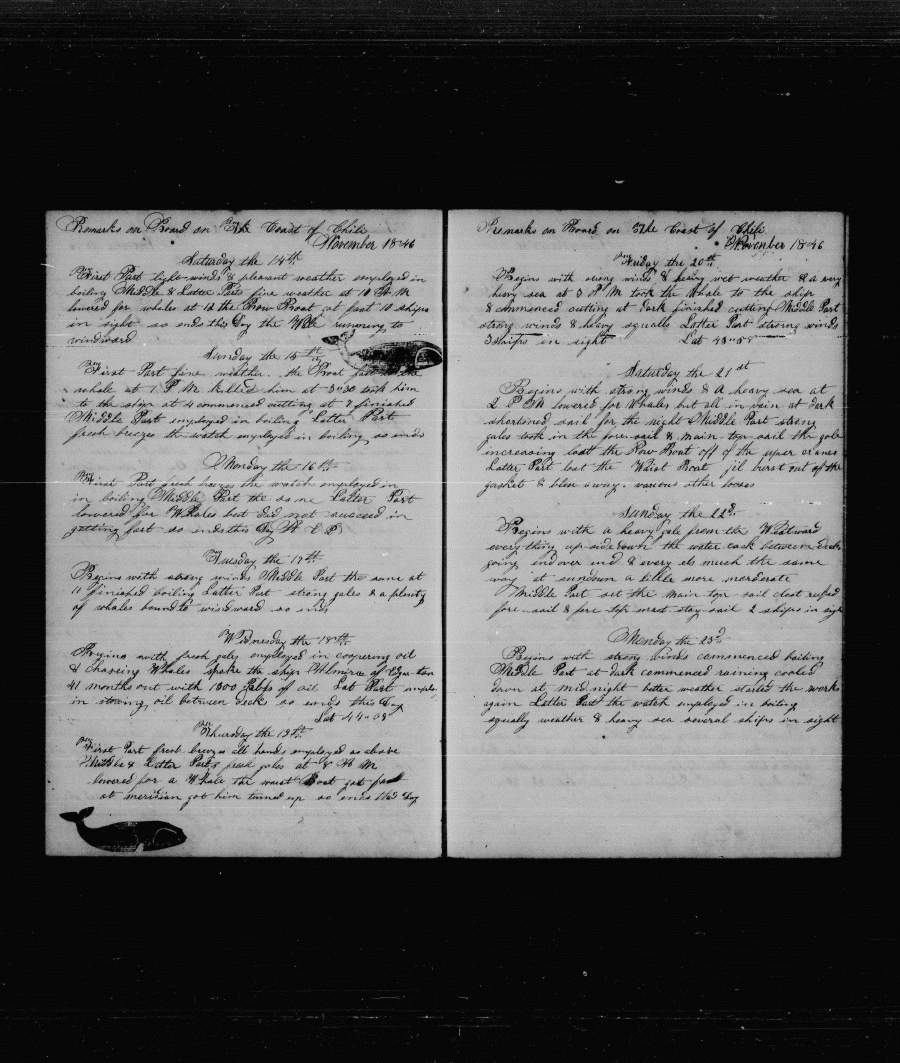 Remarks on Board on The Coast of Chili
November 1846
Saturday the 14th
First Part light winds & pleasant weather employed in
boiling Middle & Latter Parts fine weather at 10 A M
lowered for whales at 12 the Bow Boat got fast 10 ships
in sight so ends this Day the running to
windward
Sunday the 15th
First Part fine weather the Boat
whale at 1 P M killed him at 3"30 took him
to the ship at 4 commenced cutting at 7 finished
Middle Part employed in boiling Latter Part
fresh breezes the watch employed in boiling so ends
Monday the 16th
First Part fresh breezes the watch employed in
in boiling Middle Part the same Latter Part
lowered for Whales but did not succeed in
getting fast so ends this Day
Tuesday the 17th
Begins with strong winds Middle Part the same at
11 finished boiling Latter Part strong gales & a plenty
of whales bound to windward so ends
Wednesday the 18th
Begins with fresh gales employed in coopering oil
& chaseing Whales spoke the ship Almira of Edgarton
41 months out with 1300 of oil Lat Part
in stowing oil between decks so ends this Day
Lat 44"08
Thursday the 19th
First Part fresh breezes all hands employed as above
Middle & Latter Parts fresh gales at 8 A M
lowered for a Whale the waist Boat got fast
at meridian got him turned up so ends this Day
Remarks on Board on The Coast of Chili
November 1846
Friday the 20th
Begins with strong winds & heavy wet weather & a very
heavy sea at 3 P M took the Whale to the ship
& commenced cutting at dark finished cutting Middle Part
strong winds & heavy squalls Latter Part strong winds
3 ships in sight Lat 43"08
Saturday the 21st
Begins with strong winds & A heavy sea at
2 P M lowered for Whales but all in vain at dark
shortened sail for the night Middle Part strong
gales took in the fore-sail & main-top-sail the gale
increasing lost the Bow Boat off of the uper cranes
Latter Part lost the Waist Boat jib burst out of the
gasket & blew away. various other losses
Sunday the 22d
Begins with a heavy gale from the Westward
every thing up side down the water cask between decks
going endover end & every els much the same
way at sundown a little more merderate
Middle Part set the main top-sail clost reefed
fore-sail & fore-top mast stay-sail 2 ships in sigh
Monday the 23d
Begins with strong winds commenced boiling
Middle Part at dark commenced raining cooled
down at midnight better weather started the works
again Latter Part the watch employed in boiling
squally weather & heavy sea several ships in sight